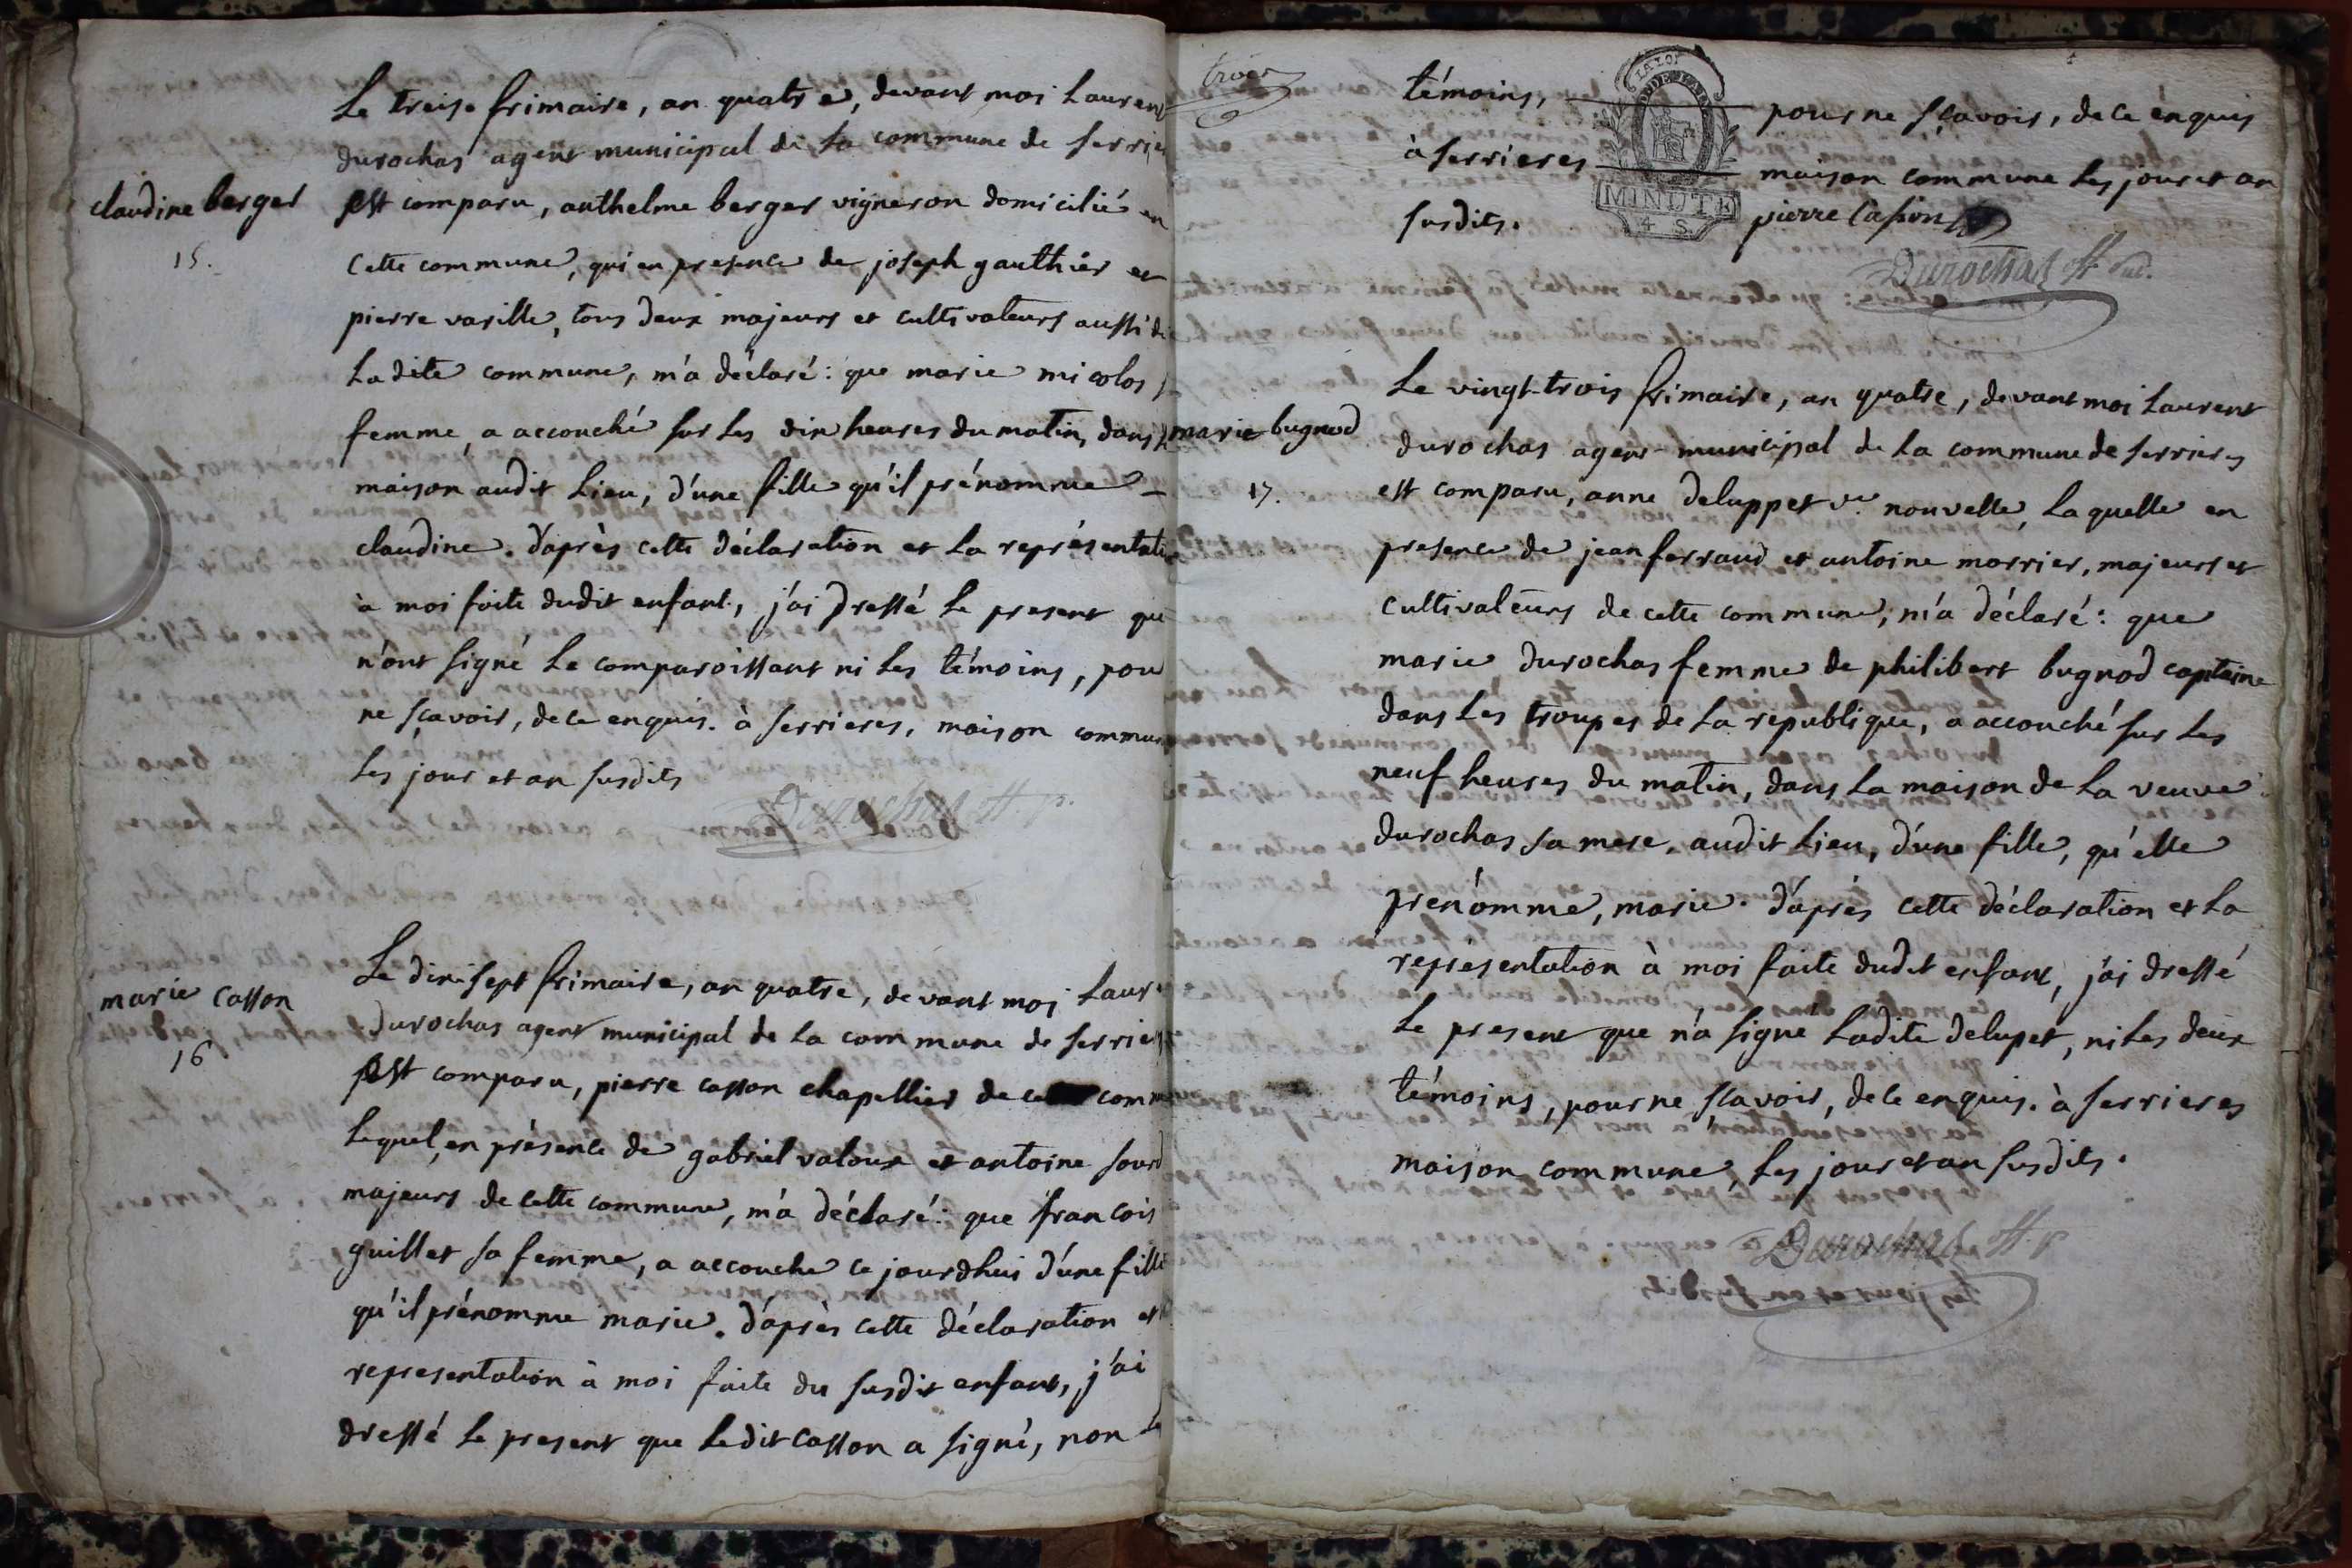 Le treise frimaire, an quatre, devant moi Laurent
durochas agent municipal de la commune de serrie
claudine berger
15.
est comparu, anthelme berger vigneron domicilié en
cette commune, qui en presence de joseph gauthier et
pierre varille, tous deux majeurs et cultivateurs aussi de
Ladite commune, m'a déclaré: que marie micolos
femme, a accouché sur les dix heures du matin, dans
maison audit Lieu, d'une fille qu'il prénomme
claudine. d'après cette déclaration et la représentati
à moi faite dudit enfant, j'ai dressé le present que
n'ont signé le comparoissant ni les témoins, pou
ne sçavoir, de ce enquis. à serrieres, maison commun
les jour et an susdits
Durochas
marie casson
16
Le dix sept frimaire, an quatre, devant moi Laur
durochas agent municipal de la commune de serrie
est comparu, pierre casson chapellier de ce comm
Lequel, en présence de gabriel valoux et antoine sourd
majeurs de cette commune, m'a déclaré: que francois
guillet sa femme, a accouché ce jourdhui d'une fille
qu'il prénomme marie. d'après cette déclaration et
representation à moi faite du susdit enfant, j'ai
dressé le present que ledit casson a signé, non
trois
témoins, pour ne sçavoir, de ce enquis
à serrieres maison commune les jour et an
susdits. pierre casson
LA LOI
MINUTE
4 S
Durochas off. pub.
marie bugnod
17.
Le vingt-trois frimaire, an quatre, devant moi Laurent
durochas agent municipal de la commune de serrieres
est comparu, anne deluppet ve. nouvelle, Laquelle en
presence de jean ferraud et antoine morrier, majeurs et
cultivateurs de cette commune, m'a déclaré: que
marie durochas femme de philibert bugnod capitaine
dans les troupes de la republique, a accouché sur les
neuf heures du matin, dans la maison de la veuve
durochas sa mere, audit Lieu, d'une fille, qu'elle
prenomme, marie. d'après cette déclaration et la
représentation à moi faite dudit enfant, j'ai dressé
le present que n'a signé Ladite delupet, ni les deux
témoins, pour ne sçavoir, de ce enquis. à serrieres
maison commune, les jour et an susdits.
Durochas off. p